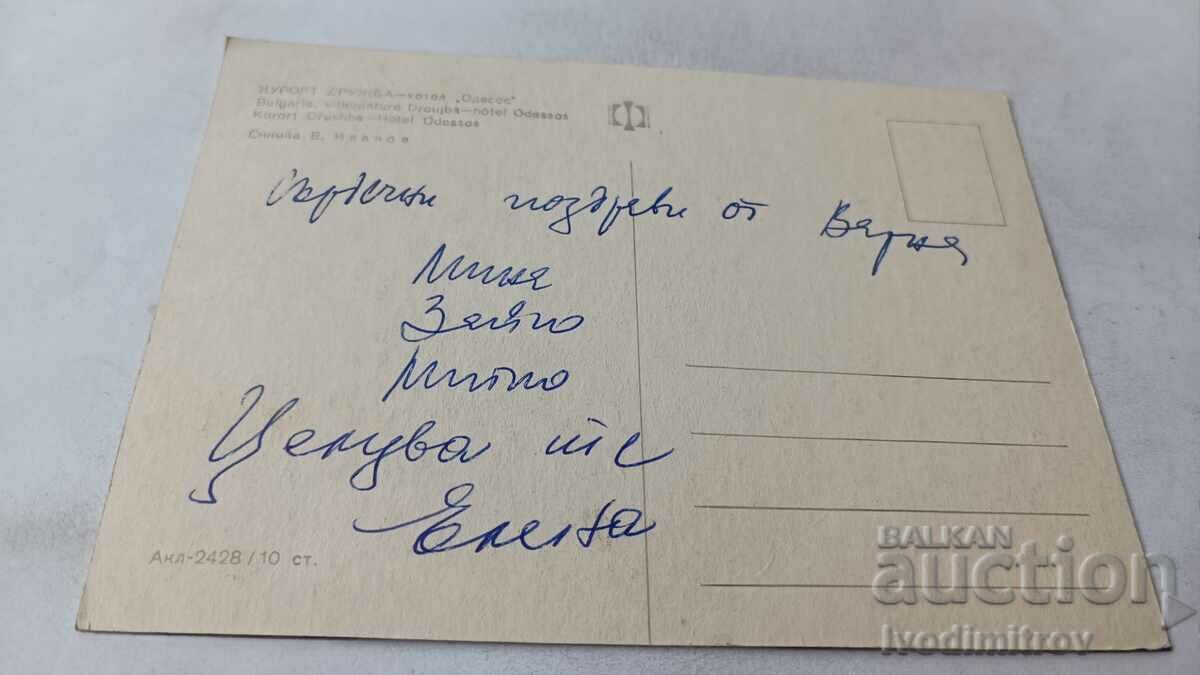 КУРОРТ ДРУЖБА—хотел „Одесос"
Bulgaria, villégiature Droujba—hôtel Odessos
Kurort Drushba—Hotel Odessos
Снимка В. Иванов
Сърдечни поздрави от Варна
Мина
Зайко
Митко
Целува те
Елена
Акл-2428/10 ст.
BALKAN
auction
Ivodimitrov